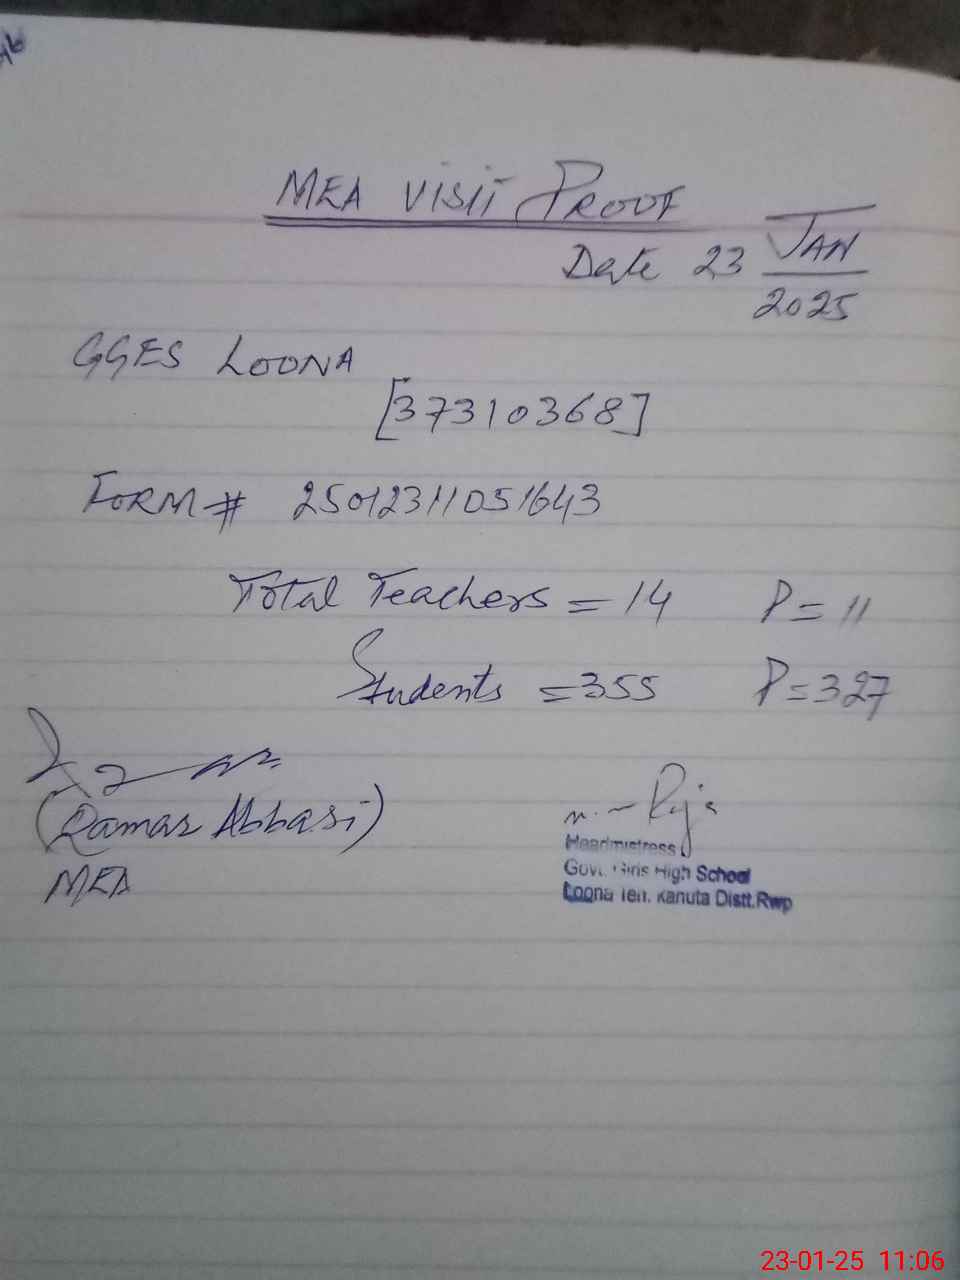 MEA VISIT PROOF
Date 23 JAN
2025
GGES LOONA
[37310368]
FORM # 25012311051643
Total Teachers = 14 P = 11
Students = 355 P = 327
(Qamar Abbasi)
MEA
Headmistress
Govt. Girls High School
Loona Teh. Kahuta Distt.Rwp
23-01-25 11:06